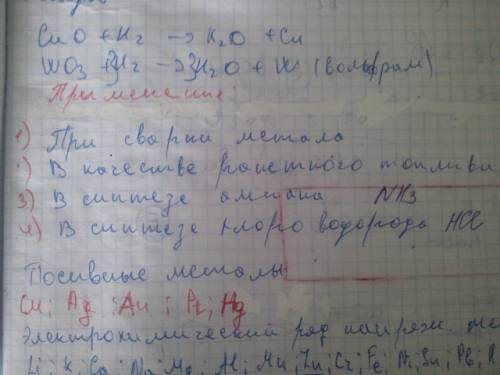 CuO + H₂ → H₂O + Cu
WO₃ + 3H₂ → 3H₂O + W (вольфрам)
Применение:
1) При сварки метала
) В качестве ракетного топлива
3) В синтезе амиака NH₃
4) В синтезе хлоро водорода HCl
Посивные металы
Cu; Ag; Au; Pt; Hg
Электрохимический ряд напряж.
Li; K; Ca; Na; Mg; Al; Mn; Zn; Cr; Fe; Ni; Sn; Pb;